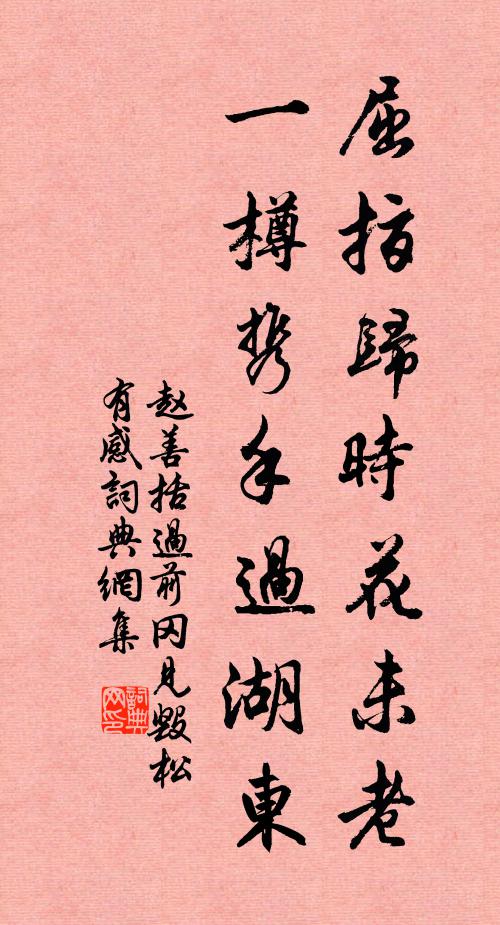 屈指歸時花未老
一樽携手過湖東
赵善括過前冈見毀松
有感詞典網集
詞典网印